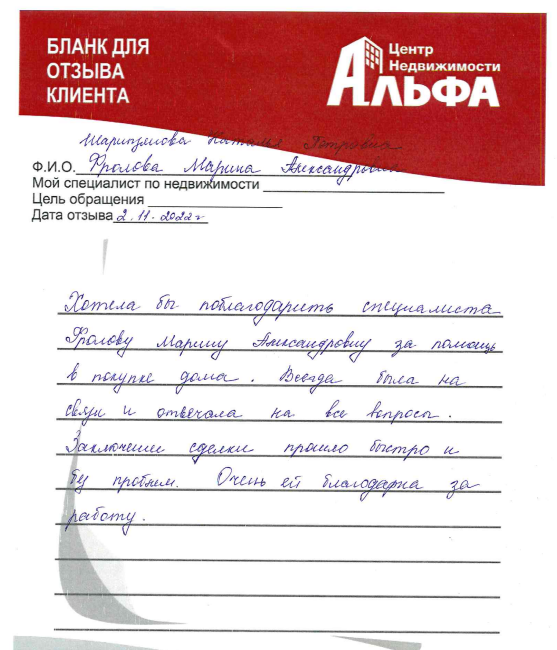 БЛАНК ДЛЯ
ОТЗЫВА
КЛИЕНТА
Центр
Недвижимости
АЛЬФА
Наталья Петровна
Ф.И.О. Фролова Марина Александровна
Мой специалист по недвижимости
Цель обращения
Дата отзыва 2.11.2022г
Хотела бы поблагодарить специалиста
Фролову Марину Александровну за помощь
в покупке дома. Всегда была на
связи и отвечала на все вопросы.
Заключение сделки прошло быстро и
без проблем. Очень ей благодарна за
работу.